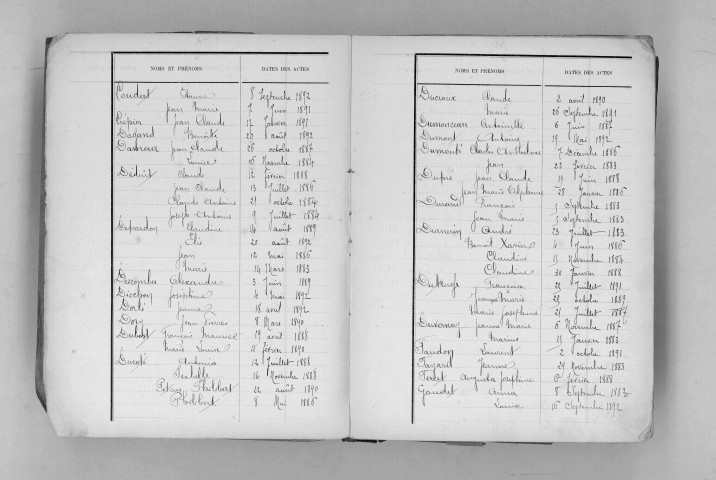 NOMS ET PRÉNOMS DATES DES ACTES
Coudert Etienne 8 Septembre 1892
Jean Marie 7 Juin 1891
Crépier Jean Claude 17 Janvier 1891
Dagand Benoîte 20 août 1892
Damour Jean Claude 26 octobre 1887
Louise 16 Novembre 1884
Claude 12 Février 1888
Jean Claude 13 Juillet 1886
Claude Antoine 21 octobre 1884
Joseph Antoine 9 Juillet 1884
Depardon Claudine 14 août 1889
Elie 20 août 1892
Jean 12 Mai 1886
Marie 14 Mars 1883
Descombes Alexandre 3 Juin 1889
Diochon Joséphine 4 Mai 1892
Jeanne 18 avril 1892
Dory Jean Pierre 8 Mars 1890
Dubost François Maurice 19 avril 1888
Marie Louise 11 février 1890
Ducoté Antonia 12 Juillet 1888
Isabelle 16 Novembre 1888
Philibert 22 août 1890
Philibert 8 Mai 1886
NOMS ET PRÉNOMS DATES DES ACTES
Ducroux Claude 2 août 1890
Marie 26 Septembre 1881
Dumonceau Antoinette 6 Juin 1887
Dumont Antoine 19 Mai 1892
Dumont Charles Anthelme 7 Décembre 1886
Jean 22 Février 1883
Dupré Jean Claude 19 Juin 1888
Jean Marie Alphonse 28 Janvier 1886
Durand François 5 Septembre 1883
Jean Marie 5 Septembre 1883
André 23 Juillet 1883
Benoit Xavier 4 Juin 1886
Claudine 11 Novembre 1884
Claudine 30 Janvier 1888
Françoise 29 Juillet 1891
Marie 28 octobre 1889
Marie Josephine 21 Juillet 1887
Duvernay Jeanne Marie 6 Novembre 1887
Marius 18 Janvier 1883
Faudon Laurent 2 octobre 1891
Fayard Jeanne 24 Novembre 1883
Augusta Josephine 6 Février 1888
Gaudet Anna 8 Septembre 1883
Louise 16 Septembre 1892